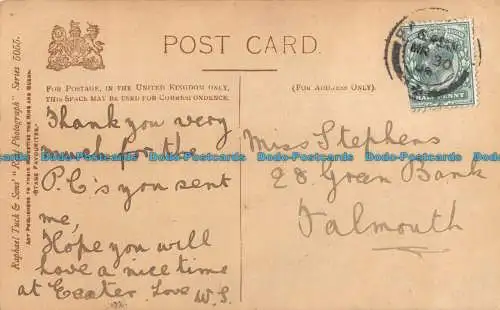 POST CARD.
FOR POSTAGE, IN THE UNITED KINGDOM ONLY,
THIS SPACE MAY BE USED FOR CORRESPONDENCE.
(FOR ADDRESS ONLY).
Raphael Tuck & Sons' "Photograph" Series 5055.
ART PUBLISHERS TO THEIR MAJESTIES THE KING AND QUEEN.
"STAGE FAVOURITES."
Thank you very
much for the
P.C's you sent
me,
Hope you will
have a nice time
at Exeter. Love W.S.
Miss Stephens
28 Green Bank
Falmouth
MR 30
HALFPENNY
Dodo-Postcards Dodo-Postcards Dodo-Postcards Dodo-Postcards Dodo-Postcards